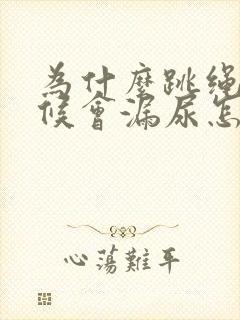 为什麼跳绳
候會漏尿怎
心蕩難平